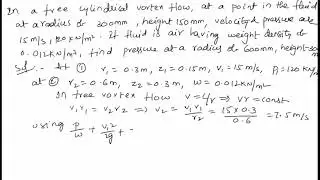 In a free cylindrical vortex flow, at a point in the fluid
at a radius of 300mm, height 150mm, velocity & pressure are
15 m/s, 120 KN/m². If fluid is air having weight density of
0.012 KN/m³, find pressure at a radius of 600mm, height 300mm
Sol: At ① r₁ = 0.3m, z₁ = 0.15m, v₁ = 15m/s, P₁ = 120 KN/m²
at ② r₂ = 0.6m, z₂ = 0.3m, w = 0.012 KN/m³
In free vortex flow v = c/r ⇒ vr = const
v₁r₁ = v₂r₂ ⇒ v₂ = v₁r₁/r₂ = 15×0.3/0.6 = 7.5m/s
using P/w + v₁²/2g +